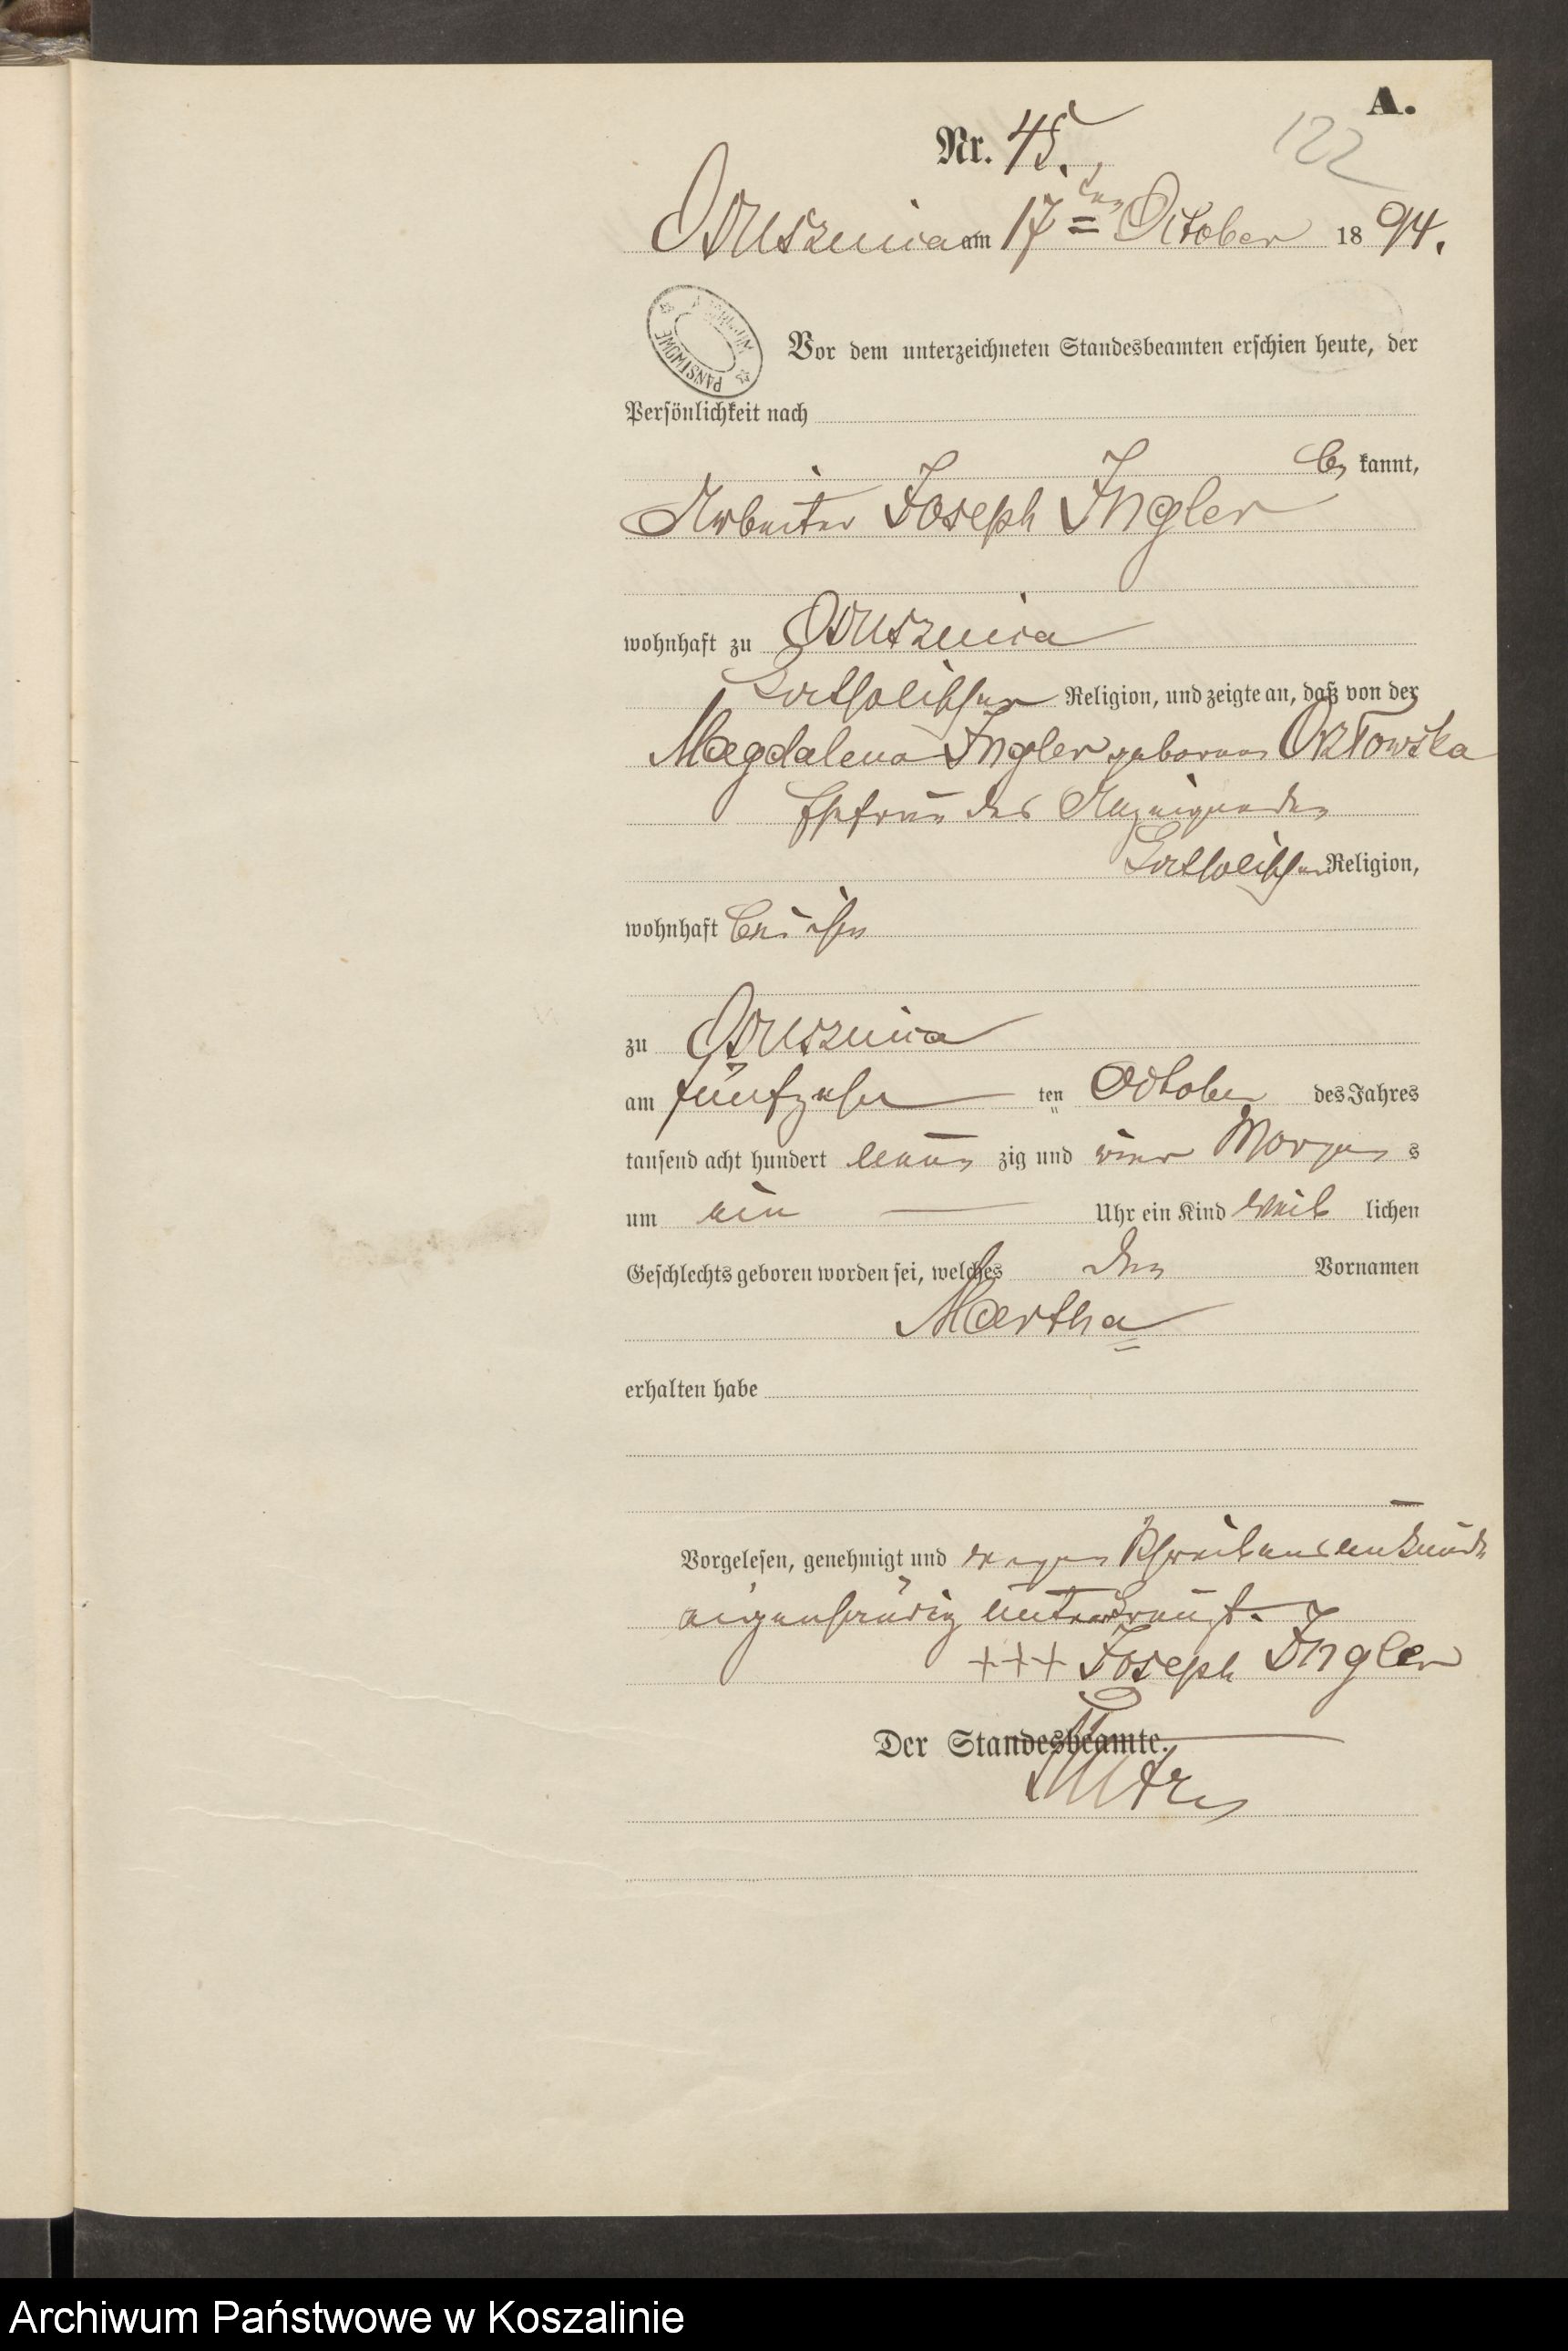 A.
122
Nr. 45.
Ossusznica am 17ten October 1894.
ARCHIWUM PAŃSTWOWE
Vor dem unterzeichneten Standesbeamten erschien heute, der
Persönlichkeit nach
be kannt,
Arbeiter Joseph Ingler
wohnhaft zu Ossusznica
katholischer Religion, und zeigte an, daß von der
Magdalena Ingler geborenen Orlowska
Ehefrau des Anzeigenden
katholischer Religion,
wohnhaft bei ihm
zu Ossusznica
am fünfzehn ten October des Jahres
tausend acht hundert neun zig und vier Morgen s
um ein Uhr ein Kind weib lichen
Geschlechts geboren worden sei, welches den Vornamen
Martha
erhalten habe
Vorgelesen, genehmigt und wegen Schreibensunkunde
eigenhändig unterkreuzt.
+++ Joseph Ingler
Der Standesbeamte.
Archiwum Państwowe w Koszalinie